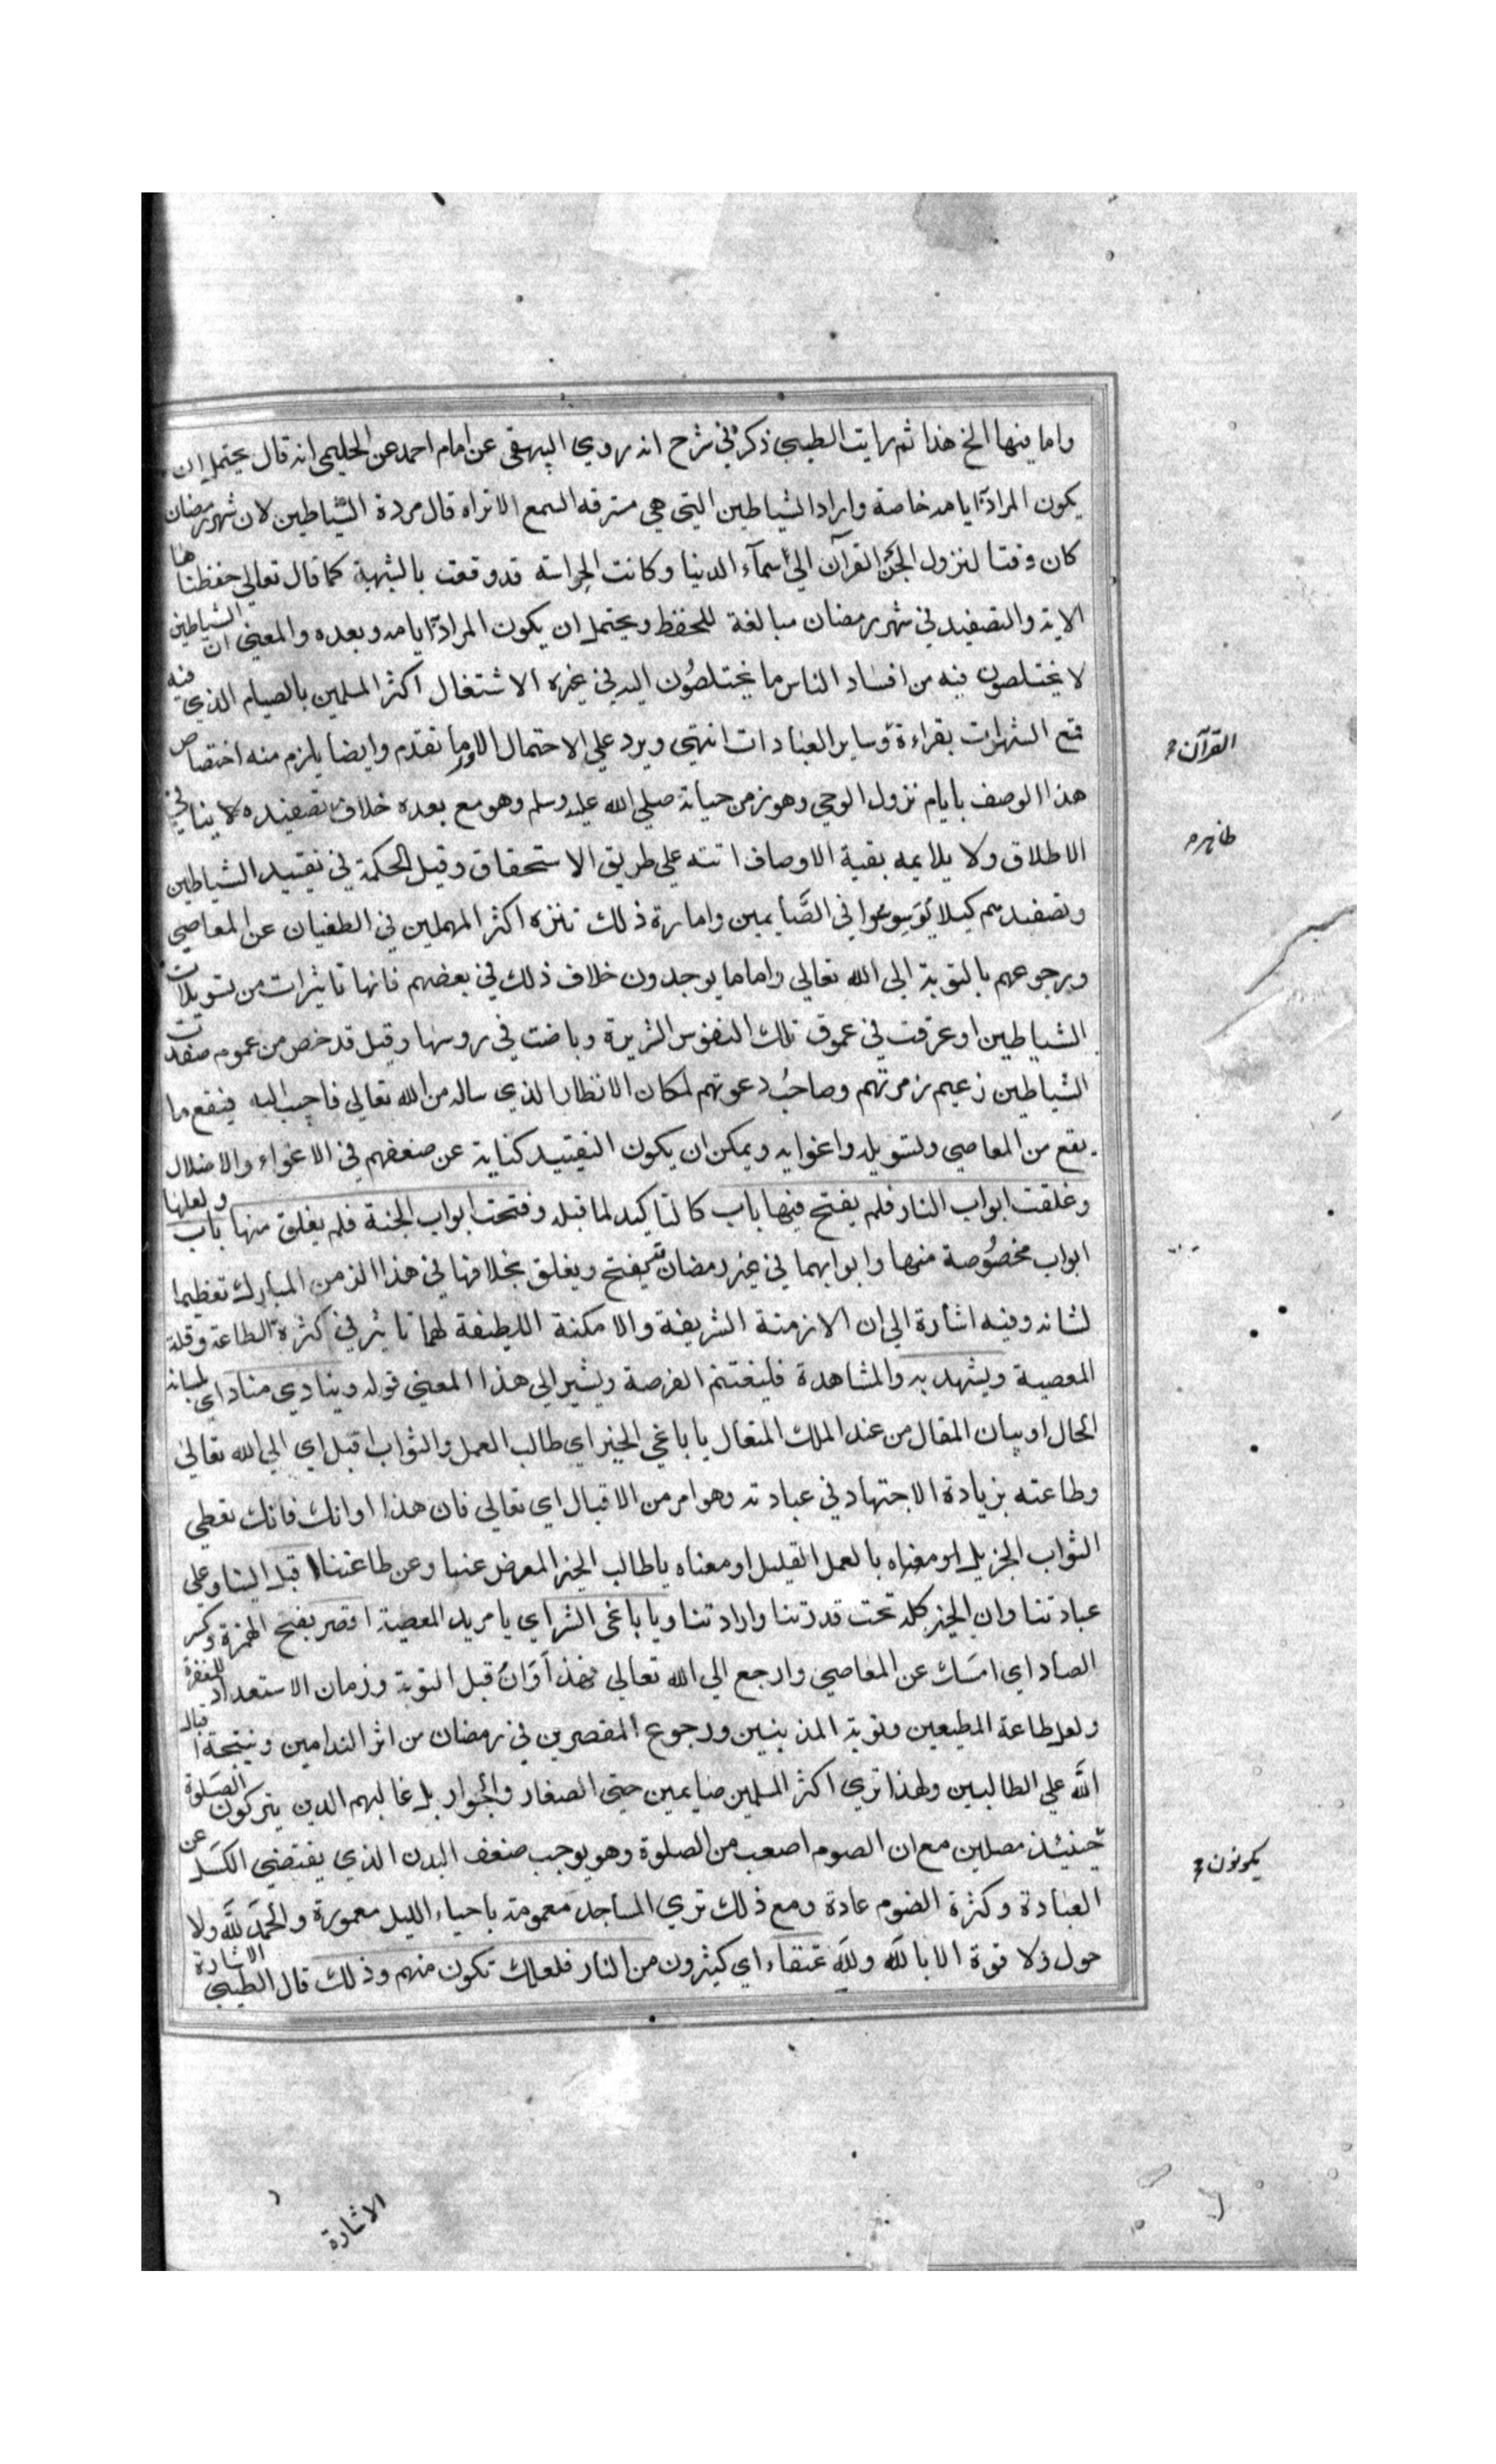 واما فيها الخ هذا ثم رايت الطيبي ذكر في شرح انه روي البيهقي عن امام احمد عن الحليمي انه قال يحتمل ان
يكون المراد ايامه خاصة واراد الشياطين التي هي مسترقه السمع الا تراه قال مردة الشياطين لان شهر رمضان
كان وقتا لنزول القرآن الي سمآء الدنيا وكانت الحراسة قد وقعت بالشهبة كما قال تعالي حفظناها
الاية والتصفيد في شهر رمضان مبالغة للحفظ ويحتمل ان يكون المراد ايامه وبعده والمعني ان الشياطين
لا يختلصون فيه من افساد الناس ما يختلصُون اليه في غيره الاشتغال اكثر المسلمين بالصيام الذي فيه
قمع الشهوات بقراءة وساير العبادات انتهي ويرد علي الاحتمال الاول ما تقدم وايضا يلزم منه اختصاص
القرآن
هذا الوصف بايام نزول الوحي وهو زمن حياته صلي الله عليه وسلم وهو مع بعده خلاف تصفيده لا ينافي
الاطلاق ولا يلايمه بقية الاوصاف اتته علي طريق الاستحقاق وقيل الحكمة في تقييد الشياطين
وتصفيدهم كيلا يوسوسوا في الصَّايمين وامارة ذلك تنزه اكثر المهملين في الطغيان عن المعاصي
ورجوعهم بالتوبة الي الله تعالي واما ما يوجدون خلاف ذلك في بعضهم فانها تاثيرات من تسويلات
الشياطين او عرقت في عموق تلك النفوس الشريرة وباضت في روسها وقيل قد خص من عموم صفدت
الشياطين زعيم زمرتهم وصاحبُ دعوتهم لمكان الانظار الذي ساله من الله تعالي فاجيب اليه فيقع ما
يقع من المعاصي ولتسويله واغوايه ويمكن ان يكون التقييد كناية عن ضعفهم في الاغواء والاضلال
وغلقت ابواب النار فلم يفتح فيها باب كالتاكيد لما قبله وفتحت ابواب الجنة فلم يغلق منها باب ولعلها
ابواب مخصُوصة منها وابوابهما في غير رمضان تفتح ويغلق بخلافها في هذا الزمن المبارك تعظيما
لشانه وفيه اشارة الي ان الازمنة الشريفة والامكنة اللطيفة لهما تاثير في كثرة الطاعة وقلة
المعصية ويشهد به والمشاهدة فليغتنم الفرصة ويشير الي هذا المعني قوله وينادي مناد اي بلسانه
الحال او بيان المقال من عند الملك المتعال يا باغي الخير اي طالب العمل والثواب اقبل اي الي الله تعالي
وطاعته بزيادة الاجتهاد في عبادته وهو امر من الاقبال اي تعالي فان هذا اوانك فانك تعطي
الثواب الجزيل بالعمل القليل او معناه يا طالب الخير المعرض عنا وعن طاعتنا اقبل الينا وعلي
عبادتنا وان الخير كله تحت قدرتنا وارادتنا ويا باغي الشر اي يا مريد المعصية اقصر بفتح الهمزة وكسر
الصاد اي امسَك عن المعاصي وارجع الي الله تعالي فهذا أوَانُ قبل التوبة وزمان الاستعداد للمغفرة
ولعل طاعة المطيعين وتوبة المذنبين ورجوع المقصرين في رمضان من اثر الندامين ونتيجة اقباله
اللّه علي الطالبين ولهذا تري اكثر المسلمين صايمين حتي الصغار والجوار بل غالبهم الذين يتركون الصلوة
حينئذ مصلين مع ان الصوم اصعب من الصلوة وهو يوجب ضعف البدن الذي يقتضي الكسل عن
يكونون
العبادة وكثرة النوم عادة ومع ذلك تري المساجد معمومة باحياء الليل معمورة والحمد للّه ولا
حول ولا قوة الا باللّه وللّه عتقاء اي كثيرون من النار فلعلك تكون منهم وذلك قال الطيبي الاشارة
الاشارة